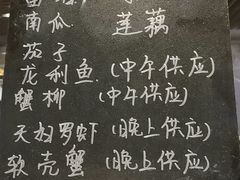 南瓜 莲藕
茄子
龙利鱼(中午供应)
蟹柳(中午供应)
天妇罗虾(晚上供应)
软壳蟹(晚上供应)